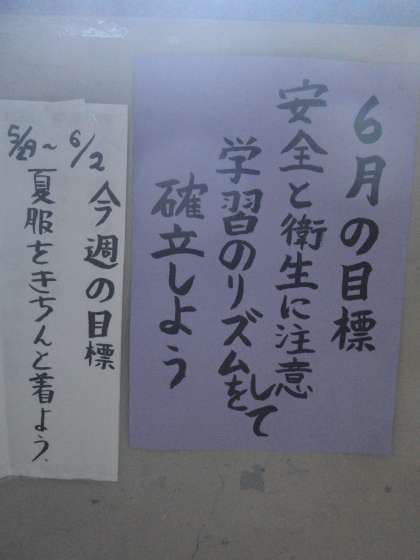 6月の目標
安全と衛生に注意して
学習のリズムを
確立しよう
5/28〜6/2
今週の目標
夏服をきちんと着よう.